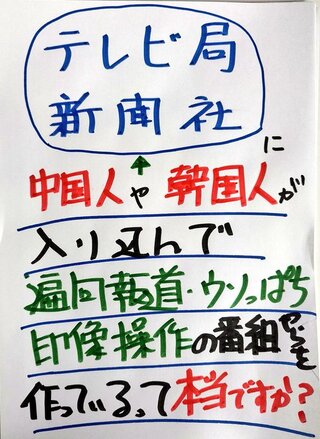 テレビ局
新聞社に
中国人や韓国人が
入り込んで
遍向報道・ウソっぱち
印像操作の番組を
作っているって本当ですか?